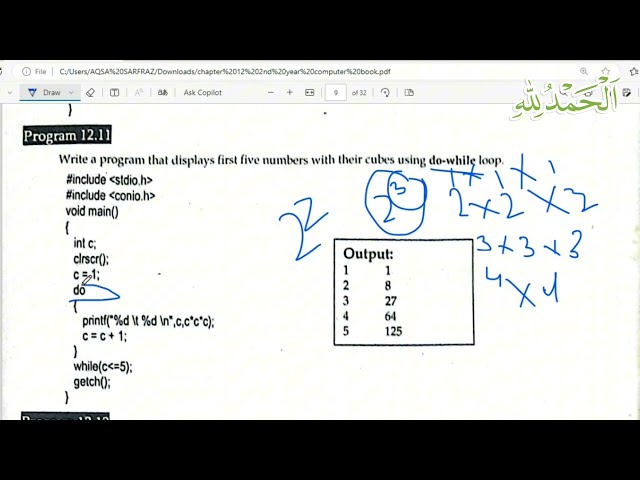 File
C:/Users/AQSA%20SARFRAZ/Downloads/chapter%2012%202nd%20year%20computer%20book.pdf
اَلْحَمْدُلِلّٰهِ
Draw
Ask Copilot
9 of 32
}
Program 12.11
Write a program that displays first five numbers with their cubes using do-while loop.
#include <stdio.h>
#include <conio.h>
void main()
{
int c;
clrscr();
c = 1;
do
{
printf("%d \t %d \n",c,c*c*c);
c = c + 1;
}
while(c<=5);
getch();
}
Output:
1 1
2 8
3 27
4 64
5 125
2²
2³
1 × 1 × 1
2 × 2 × 2
3 × 3 × 3
4 × 4